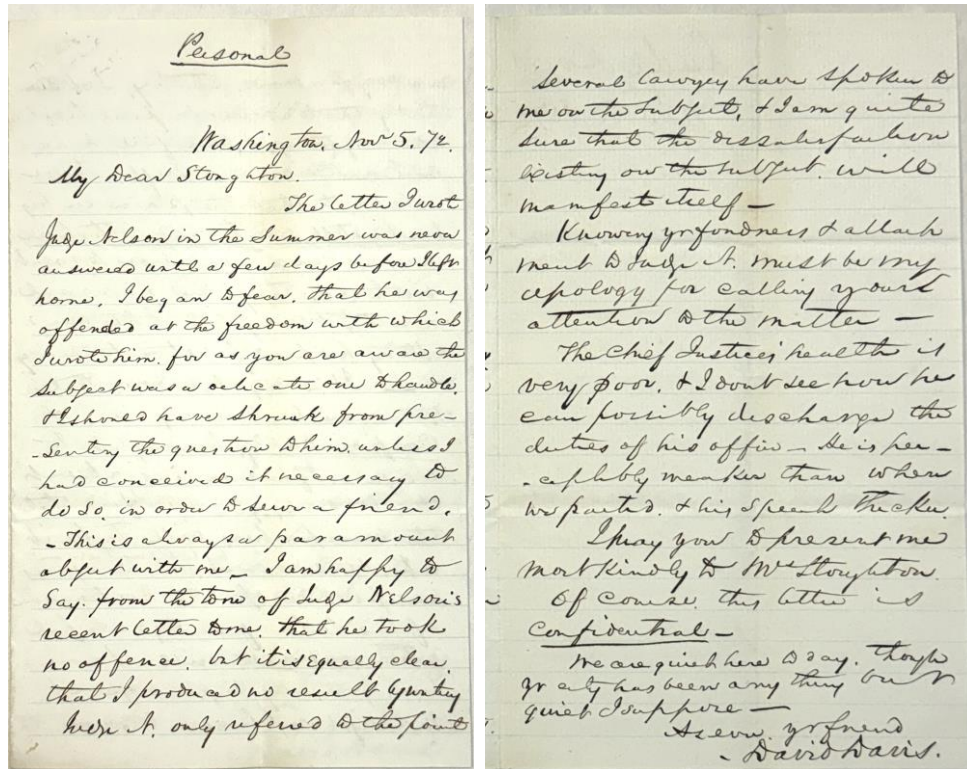 Personal
Washington, Nov 5. 72.
My Dear Stoughton.
The letter I wrote
Judge Nelson in the Summer was never
answered until a few days before I left
home. I began to fear, that he was
offended at the freedom with which
I wrote him. for as you are aware the
Subject was a delicate one to handle.
& I should have shrunk from pre-
-senting the question to him, unless I
had conceived it necessary to
do so, in order to serve a friend.
- This is always a paramount
object with me - I am happy to
say. from the tone of Judge Nelson's
recent letter to me. that he took
no offence. but it is equally clear.
that I produced no result by writing
Judge N. only referred to the point
Several lawyers have spoken to
me on the subject, & I am quite
sure that the dissatisfaction
existing on the subject. will
manifest itself -
Knowing yr fondness & attach
ment to Judge N. must be my
apology for calling your
attention to the matter -
The Chief Justices health is
very poor. & I dont see how he
can possibly discharge the
duties of his office - He is per-
-ceptibly weaker than when
we parted. & his speech thicker.
I pray you to present me
most kindly to Mrs Stoughton.
Of course. this letter is
confidential -
We are quiet here to day. though
yr city has been any thing but
quiet I suppose -
As ever. yr friend
David Davis.